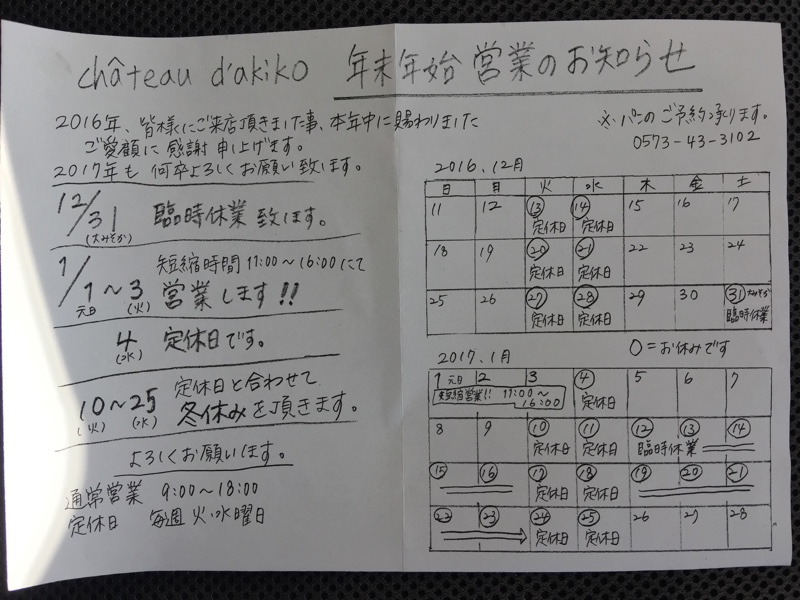 château d'akiko 年末年始 営業のお知らせ
2016年、皆様にご来店頂きました事、本年中に賜わりました
ご愛顧に 感謝 申し上げます。
2017年も 何卒よろしくお願い致します。
12/31 (大みそか) 臨時休業 致します。
1/1 元日 〜 3 (火) 短縮時間 11:00〜16:00にて
営業します!!
4 (水) 定休日です。
10 (火) 〜 25 (水) 定休日と合わせて
冬休みを頂きます。
よろしくお願いします。
通常営業 9:00〜18:00
定休日 毎週 火・水曜日
※パンのご予約承ります。
0573-43-3102
2016.12月
日 月 火 水 木 金 土
11 12 ⑬ ⑭ 15 16 17
定休日 定休日
18 19 ⑳ ㉑ 22 23 24
定休日 定休日
25 26 ㉗ ㉘ 29 30 ㉛ 大みそか
定休日 定休日 臨時休業
2017.1月 〇=お休みです
1 元日 2 3 ④ 5 6 7
短縮営業!! 11:00〜16:00 定休日
8 9 ⑩ ⑪ ⑫ ⑬ ⑭
定休日 定休日 臨時休業
⑮ ⑯ ⑰ ⑱ ⑲ ⑳ ㉑
定休日 定休日
㉒ ㉓ ㉔ ㉕ 26 27 28
定休日 定休日